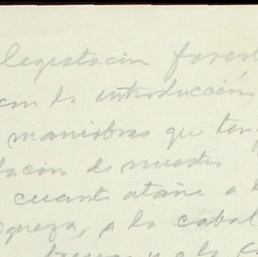 legislación forest
con la introducción
maniobras que ten
lación de nuestra
cuanto atañe a l
iqueza, a la cabal
y a la